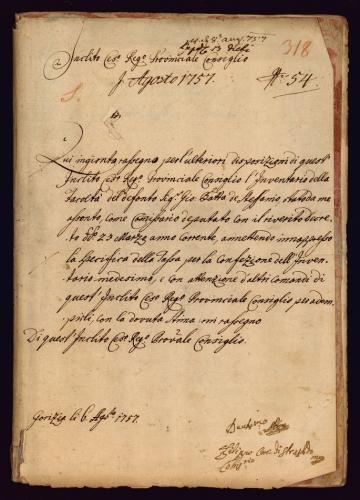 318
Inclito Ces: Reg: Provinciale Conseglio
Agosto 1757.
N: 54.
Qui ingionta rassegno per l'ulteriori disposizioni di quest'
Inclito Ces: Reg: Provinciale Consiglio l'Inventario della
facoltà del defonto Sig: Gio Batta de Stefanio, statoda me
assonto, come Comissario deputato con il riverito decre-
to dd: 23 Marzo anno corrente, annettendo in appresso
la specifica della Tassa per la Confezione dell'Inven-
tario medesimo, e con attenzione d'altri Comandi di
quest' Inclito Ces: Reg: Provinciale Consiglio per adem-
pirli, con la dovuta stima mi rassegno
Di quest'Inclito Ces: Reg: Provale Consiglio.
Gorizia li 6 Agosto 1757.